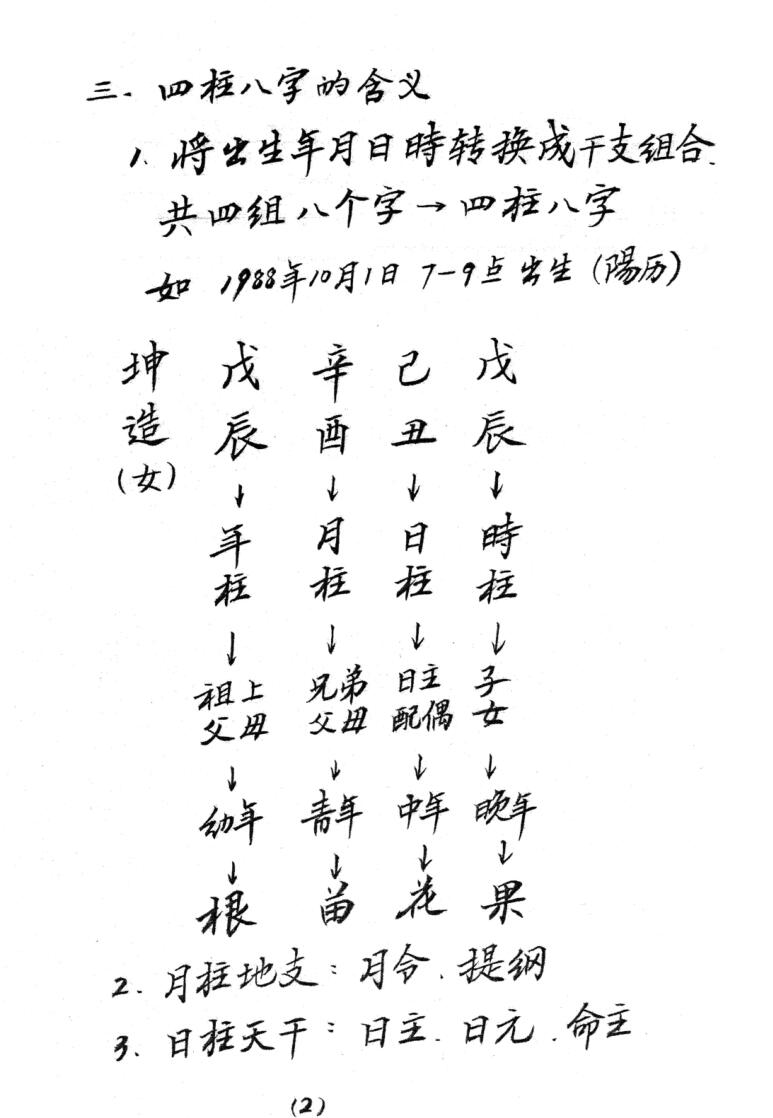 三、四柱八字的含义
1、将出生年月日時转换成干支组合.
共四组八个字→四柱八字
如 1988年10月1日 7-9点出生(陽历)
坤 戊 辛 己 戊
造 辰 酉 丑 辰
(女) ↓ ↓ ↓ ↓
年 月 日 時
柱 柱 柱 柱
↓ ↓ ↓ ↓
祖上 兄弟 日主 子
父母 父母 配偶 女
↓ ↓ ↓ ↓
幼年 青年 中年 晚年
↓ ↓ ↓ ↓
根 苗 花 果
2. 月柱地支:月令.提纲
3. 日柱天干:日主.日元.命主
(2)